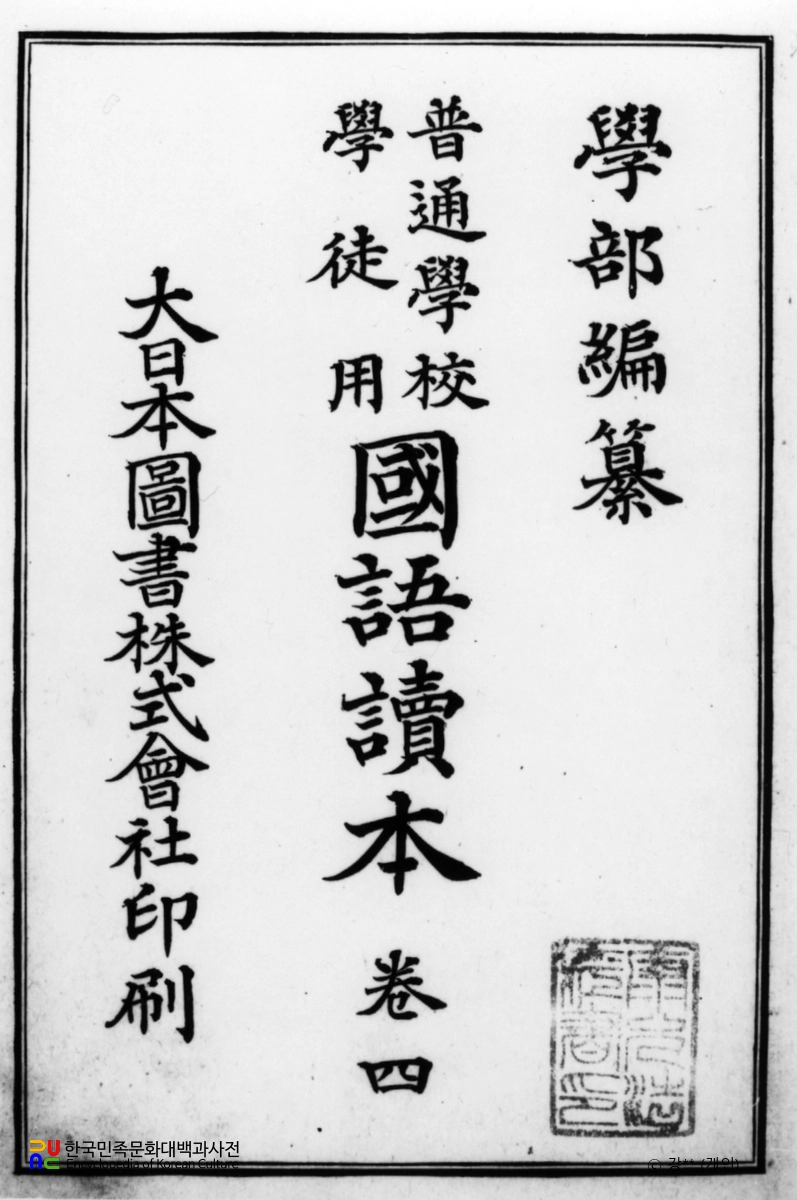 學部編纂
普通學校
學徒用
國語讀本 卷四
大日本圖書株式會社印刷
한국민족문화대백과사전
Encyclopedia of Korean Culture